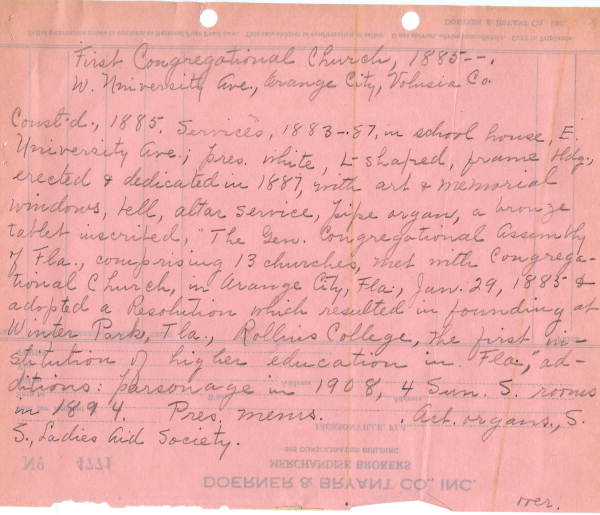 First Congregational Church, 1885--.
W. University Ave., Orange City, Volusia Co.
Const'd., 1885. Services, 1883-87, in school house, E.
University Ave.; pres. white, L-shaped, frame bldg.,
erected & dedicated in 1887, with art & memorial
windows, bell, altar service, pipe organ, a bronze
tablet inscribed, "The Gen. Congregational Assembly
of Fla., comprising 13 churches, met with Congrega-
tional Church, in Orange City, Fla., Jan. 29, 1885 &
adopted a Resolution which resulted in founding at
Winter Park, Fla., Rollins College, the first in-
stitution of higher education in Fla.", ad-
ditions: parsonage in 1908, 4 Sun. S. rooms
in 1894. Pres. mems. . Act. organs., S.
S., Ladies Aid Society.
JACKSONVILLE, FLA.
CONSOLIDATED BUILDING
No 4771
MERCHANDISE BROKERS
DOERNER & BRYANT CO., INC.
over.